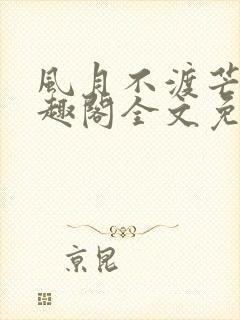 風月不渡芒
趣閣全文免
京昆